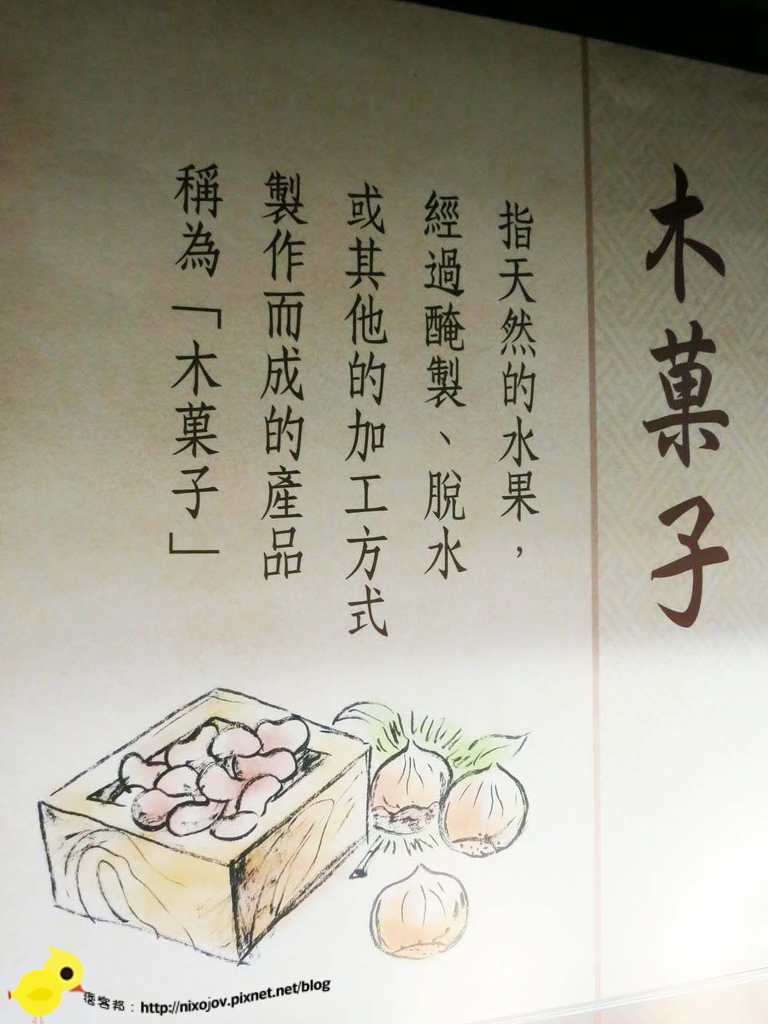 木菓子
指天然的水果，
經過醃製、脫水
或其他的加工方式
製作而成的產品
稱為「木菓子」
痞客邦：http://nixojov.pixnet.net/blog